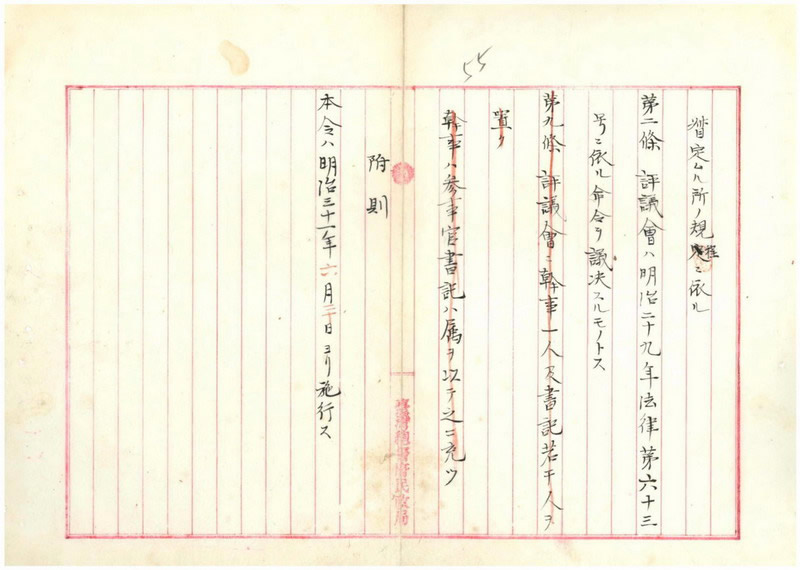 55
督定ムル所ノ規程ニ依ル
第二條 評議會ハ明治二十九年法律第六十三
号ニ依ル命令ヲ議決スルモノトス
第九條 評議會ニ幹事一人及書記若干人ヲ
置ク
幹事ハ参事官書記ハ属ヲ以テ之ニ充ツ
附則
本令ハ明治三十一年六月三十日ヨリ施行ス
臺灣總督府民政局